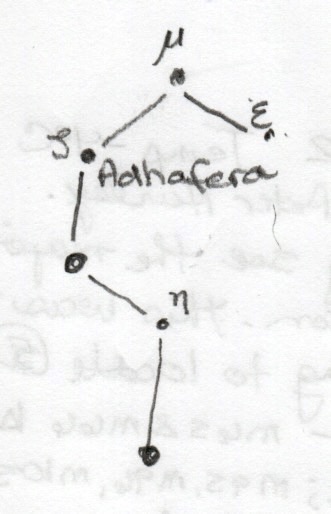 μ
ε
ζ
Adhafera
η